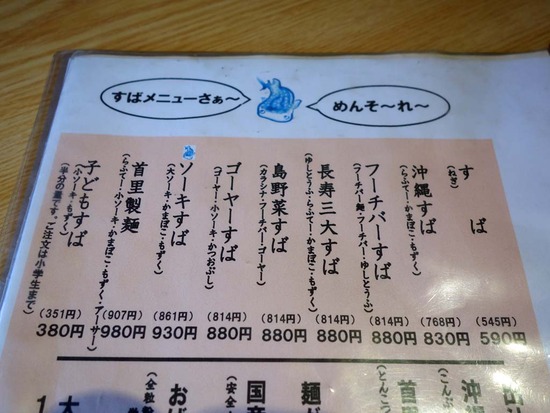 すばメニューさぁ～
めんそ～れ～
すば
（ねぎ）
（545円）
590円
沖縄すば
（らふてー・かまぼこ・もずく）
（768円）
830円
フーチバーすば
（フーチバー麺・フーチバー・ゆしどうふ）
（814円）
880円
長寿三大すば
（ゆしどうふ・らふてー・かまぼこ・もずく）
（814円）
880円
島野菜すば
（カラシナ・フーチバー・ゴーヤー）
（814円）
880円
ゴーヤーすば
（ゴーヤー・小ソーキ・かつおぶし）
（814円）
880円
ソーキすば
（大ソーキ・かまぼこ・もずく）
（861円）
930円
首里製麺
（らふてー・小ソーキ・かまぼこ・もずく・アーサー）
（907円）
980円
子どもすば
（小ソーキ・もずく）
（半分の量です。ご注文は小学生まで）
（351円）
380円
沖
（こんぶ
首里
（とんこつ
麺が
国産
（安全
おば
（全粒粉
大
1